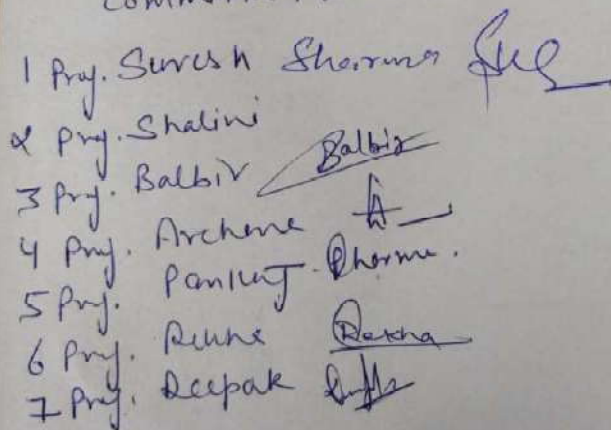 1 Prof. Suresh Sharma
2 Prof. Shalini
3 Prof. Balbir Balbir
4 Prof. Archana
5 Prof. Pankaj Sharma.
6 Prof. Rekha Rekha
7 Prof. Deepak